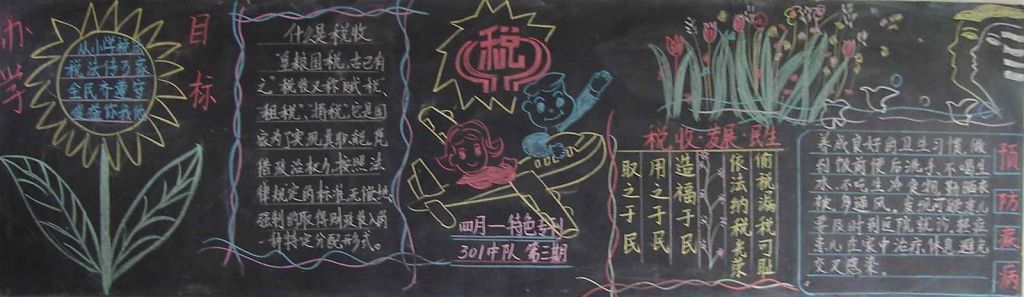 办学
目标
从小学税法
税法传万家
全民齐遵守
什么是税收
税收又称"赋税"
"租税"、"捐税"，它是国
家为了实现其职能，凭
借政治权力，按照法
律规定的标准，无偿地、
强制的取得财政收入的
一种特定分配形式。
税
四月—特色专刊
301中队 第三期
税收·发展·民生
取之于民
用之于民
造福于民
依法纳税光荣
偷税漏税可耻
养成良好的卫生习惯，做
到饭前便后洗手、不喝生
水、不吃生冷食物，勤晒衣
被，多通风，发现可疑患儿
要及时到医院就诊，轻症
患儿在家中治疗、休息，避免
交叉感染。
预防
疾病